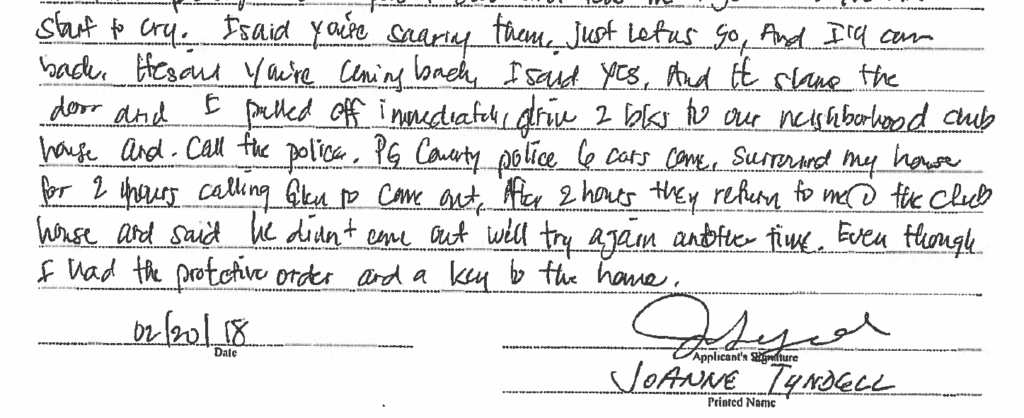 start to cry. I said you're scaring them, Just let us go, And I'll come
back. He said you're coming back, I said yes, And He slams the
door and I pulled off immediately, drive 2 blks to our neighborhood club
house and. Call the police. PG County police 6 cars come, surround my house
for 2 hours calling to come out, After 2 hours they return to me @ the club
house and said he didn't come out we'll try again another time. Even though
I had the protective order and a key to the home.
02/20/18
Date
Applicant's Signature
JOANNE TYNDELL
Printed Name